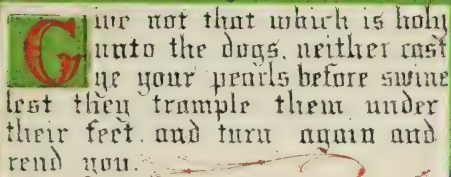 Give not that which is holy
unto the dogs, neither cast
ye your pearls before swine
lest they trample them under
their feet, and turn again and
rend you.